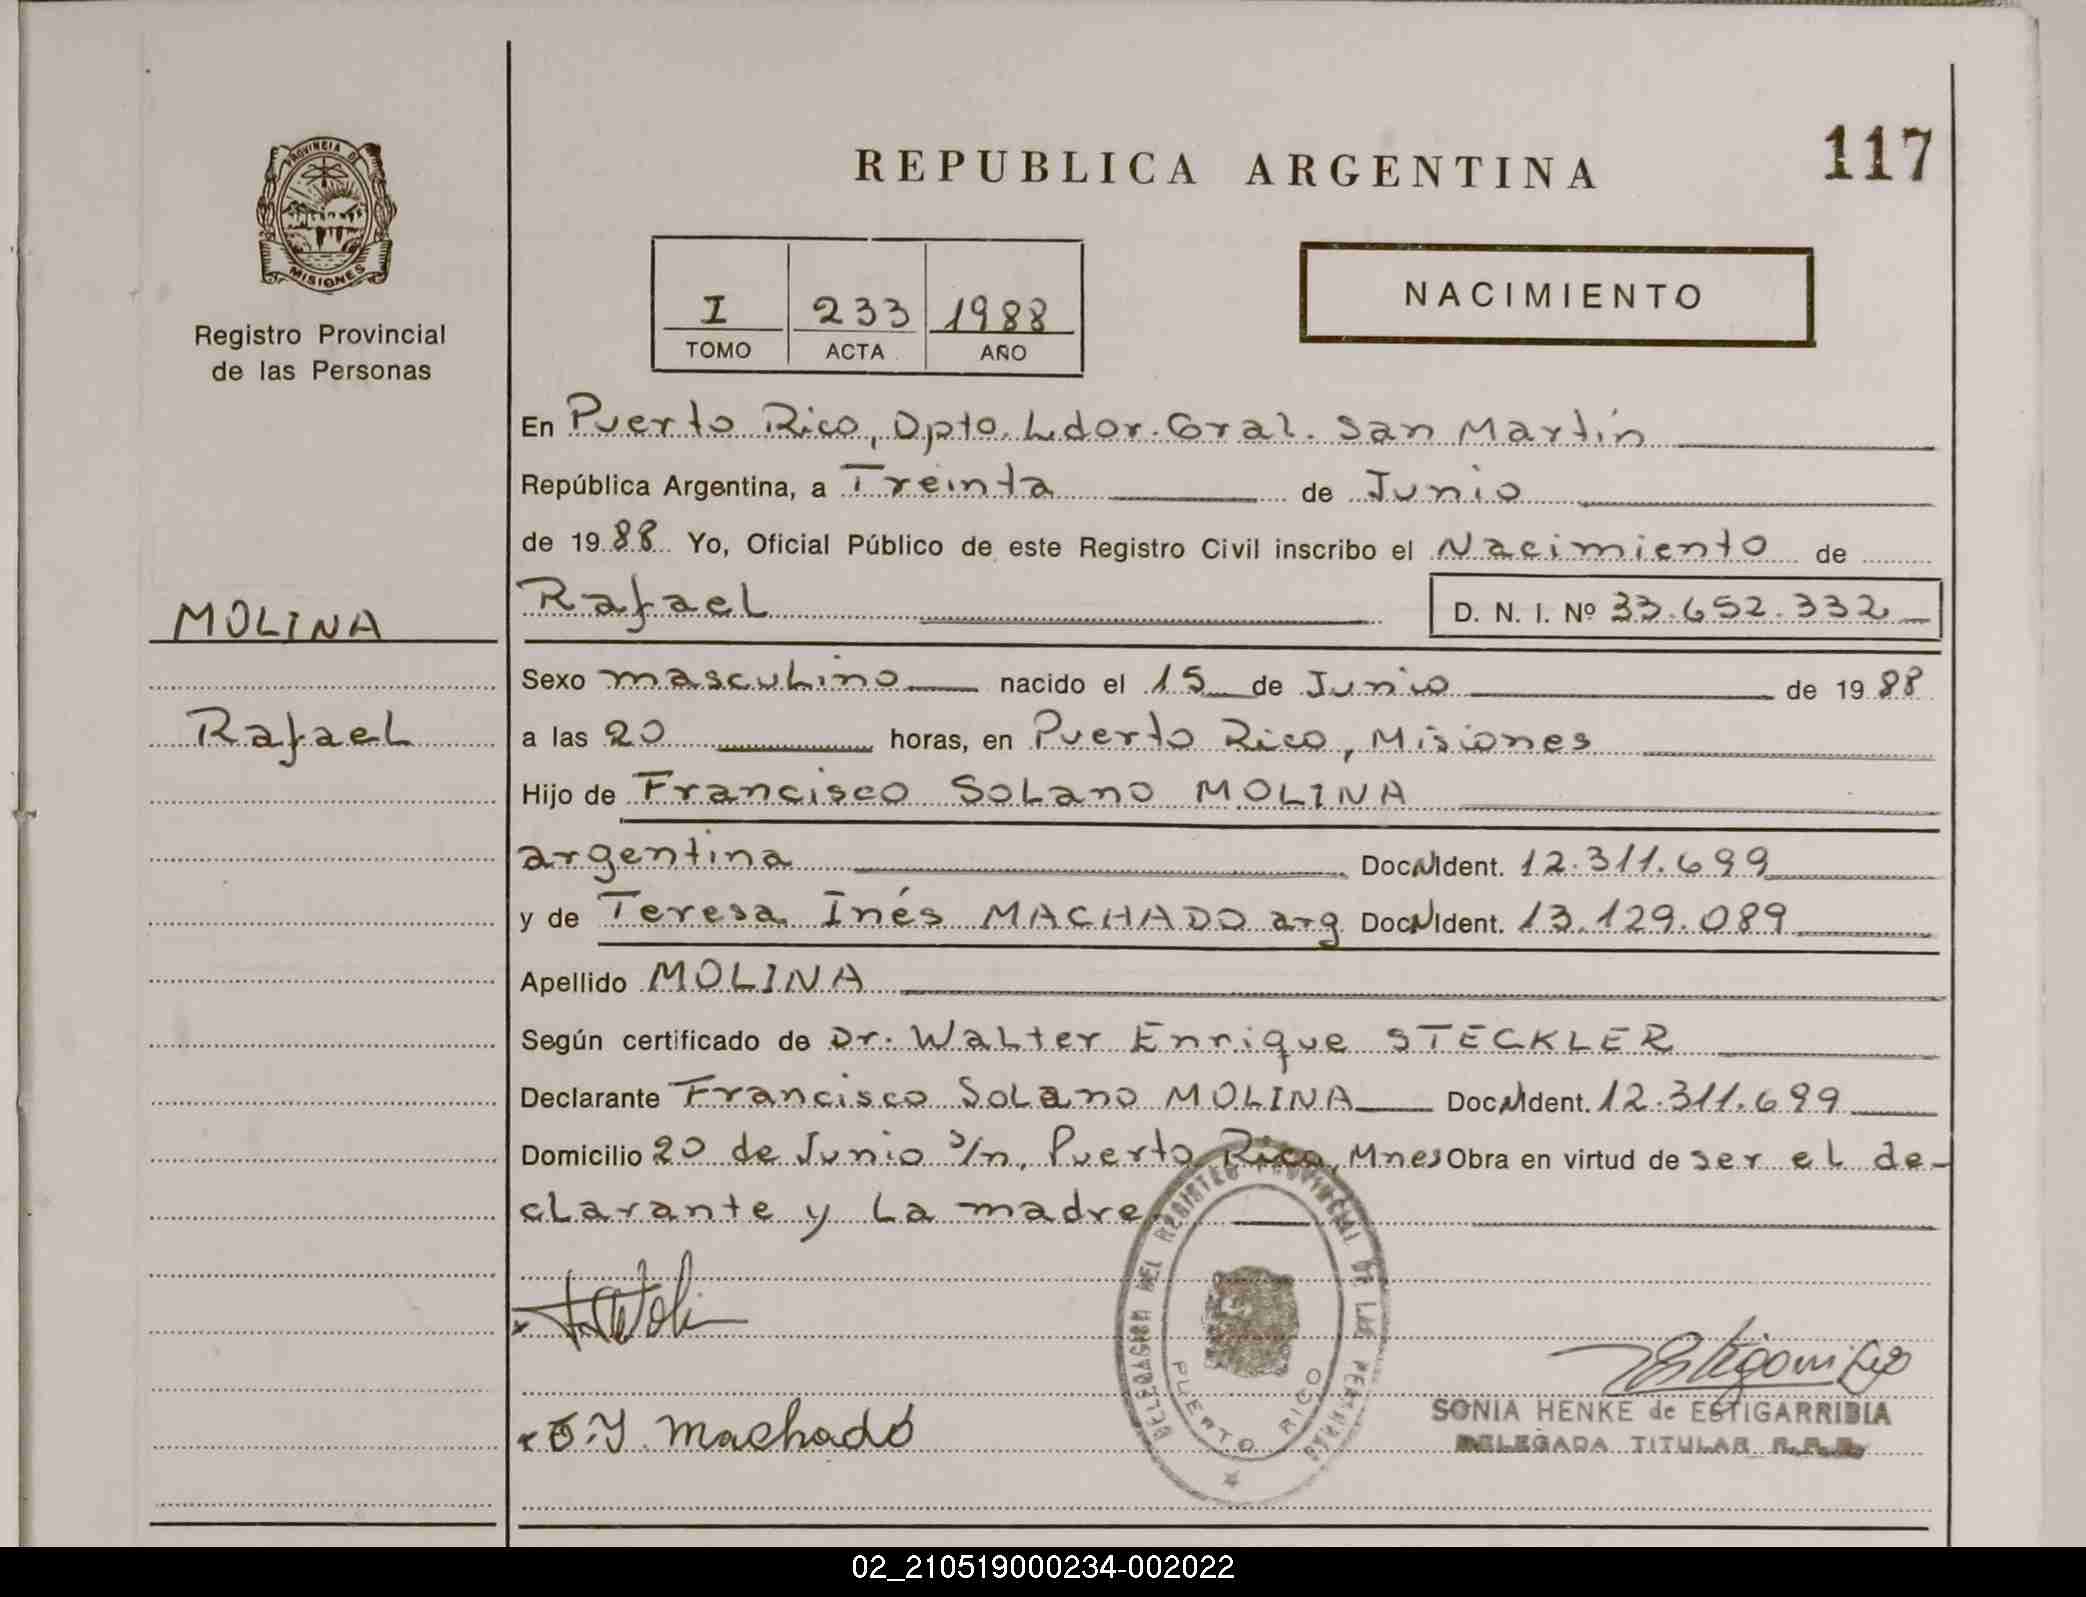 PROVINCIA DE
MISIONES
Registro Provincial
de las Personas
MOLINA
Rafael
REPUBLICA ARGENTINA
117
I 233 1988
TOMO ACTA AÑO
NACIMIENTO
En Puerto Rico, Dpto. Ldor. Gral. San Martín
República Argentina, a Treinta de Junio
de 1988 Yo, Oficial Público de este Registro Civil inscribo el Nacimiento de
Rafael D. N. I. Nº 33.652.332
Sexo masculino nacido el 15 de Junio de 1988
a las 20 horas, en Puerto Rico, Misiones
Hijo de Francisco Solano MOLINA
argentina Doc. Ident. 12.311.699
y de Teresa Inés MACHADO arg Doc. Ident. 13.129.089
Apellido MOLINA
Según certificado de Dr. Walter Enrique STECKLER
Declarante Francisco Solano MOLINA Doc. Ident. 12.311.699
Domicilio 20 de Junio s/n, Puerto Rico, Mnes Obra en virtud de ser el de-
clarante y la madre
DELEGACION DEL REGISTRO PROVINCIAL DE LAS PERSONAS
PUERTO RICO
Machado
SONIA HENKE de ESTIGARRIBIA
DELEGADA TITULAR R.P.P.
02_210519000234-002022